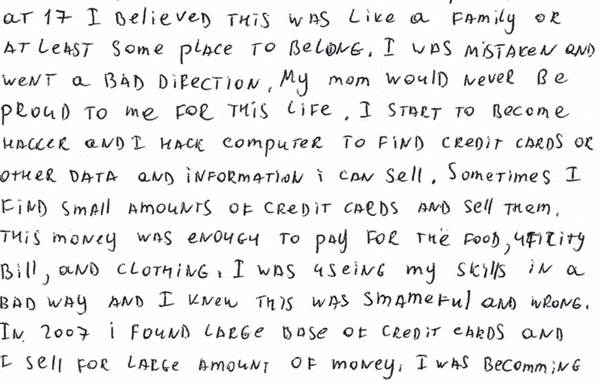 at 17 I Believed THIS WAS Like a FAMily OR
AT LEAST Some place TO BeLONG. I WAS MiSTAKEN AND
WENT a BAD DiRECTiON. My mom would Never Be
pROUD TO me FOR THIS Life. I START TO Become
HACCER AND I HACK computer TO FIND CREDiT CARDS OR
OTHER DATA AND iNFORMATiON i CAN Sell. Sometimes I
FIND SMAll AMOUNTS OF CRediT CARDS AND Sell THEM.
THIS money WAS eNOUGH TO pAy FOR THE FOOD, UTiliTy
Bill, AND CLOTHiNG. I WAS USeiNG my Skills iN a
BAD WAY AND I KNew THIS WAS SHAMeful AND WRONG.
IN 2007 i FOUND LARGE BASE OF CREDiT CARDS AND
I Sell FOR LARGE AMOUNT OF moNey. I WAS BecommiNG